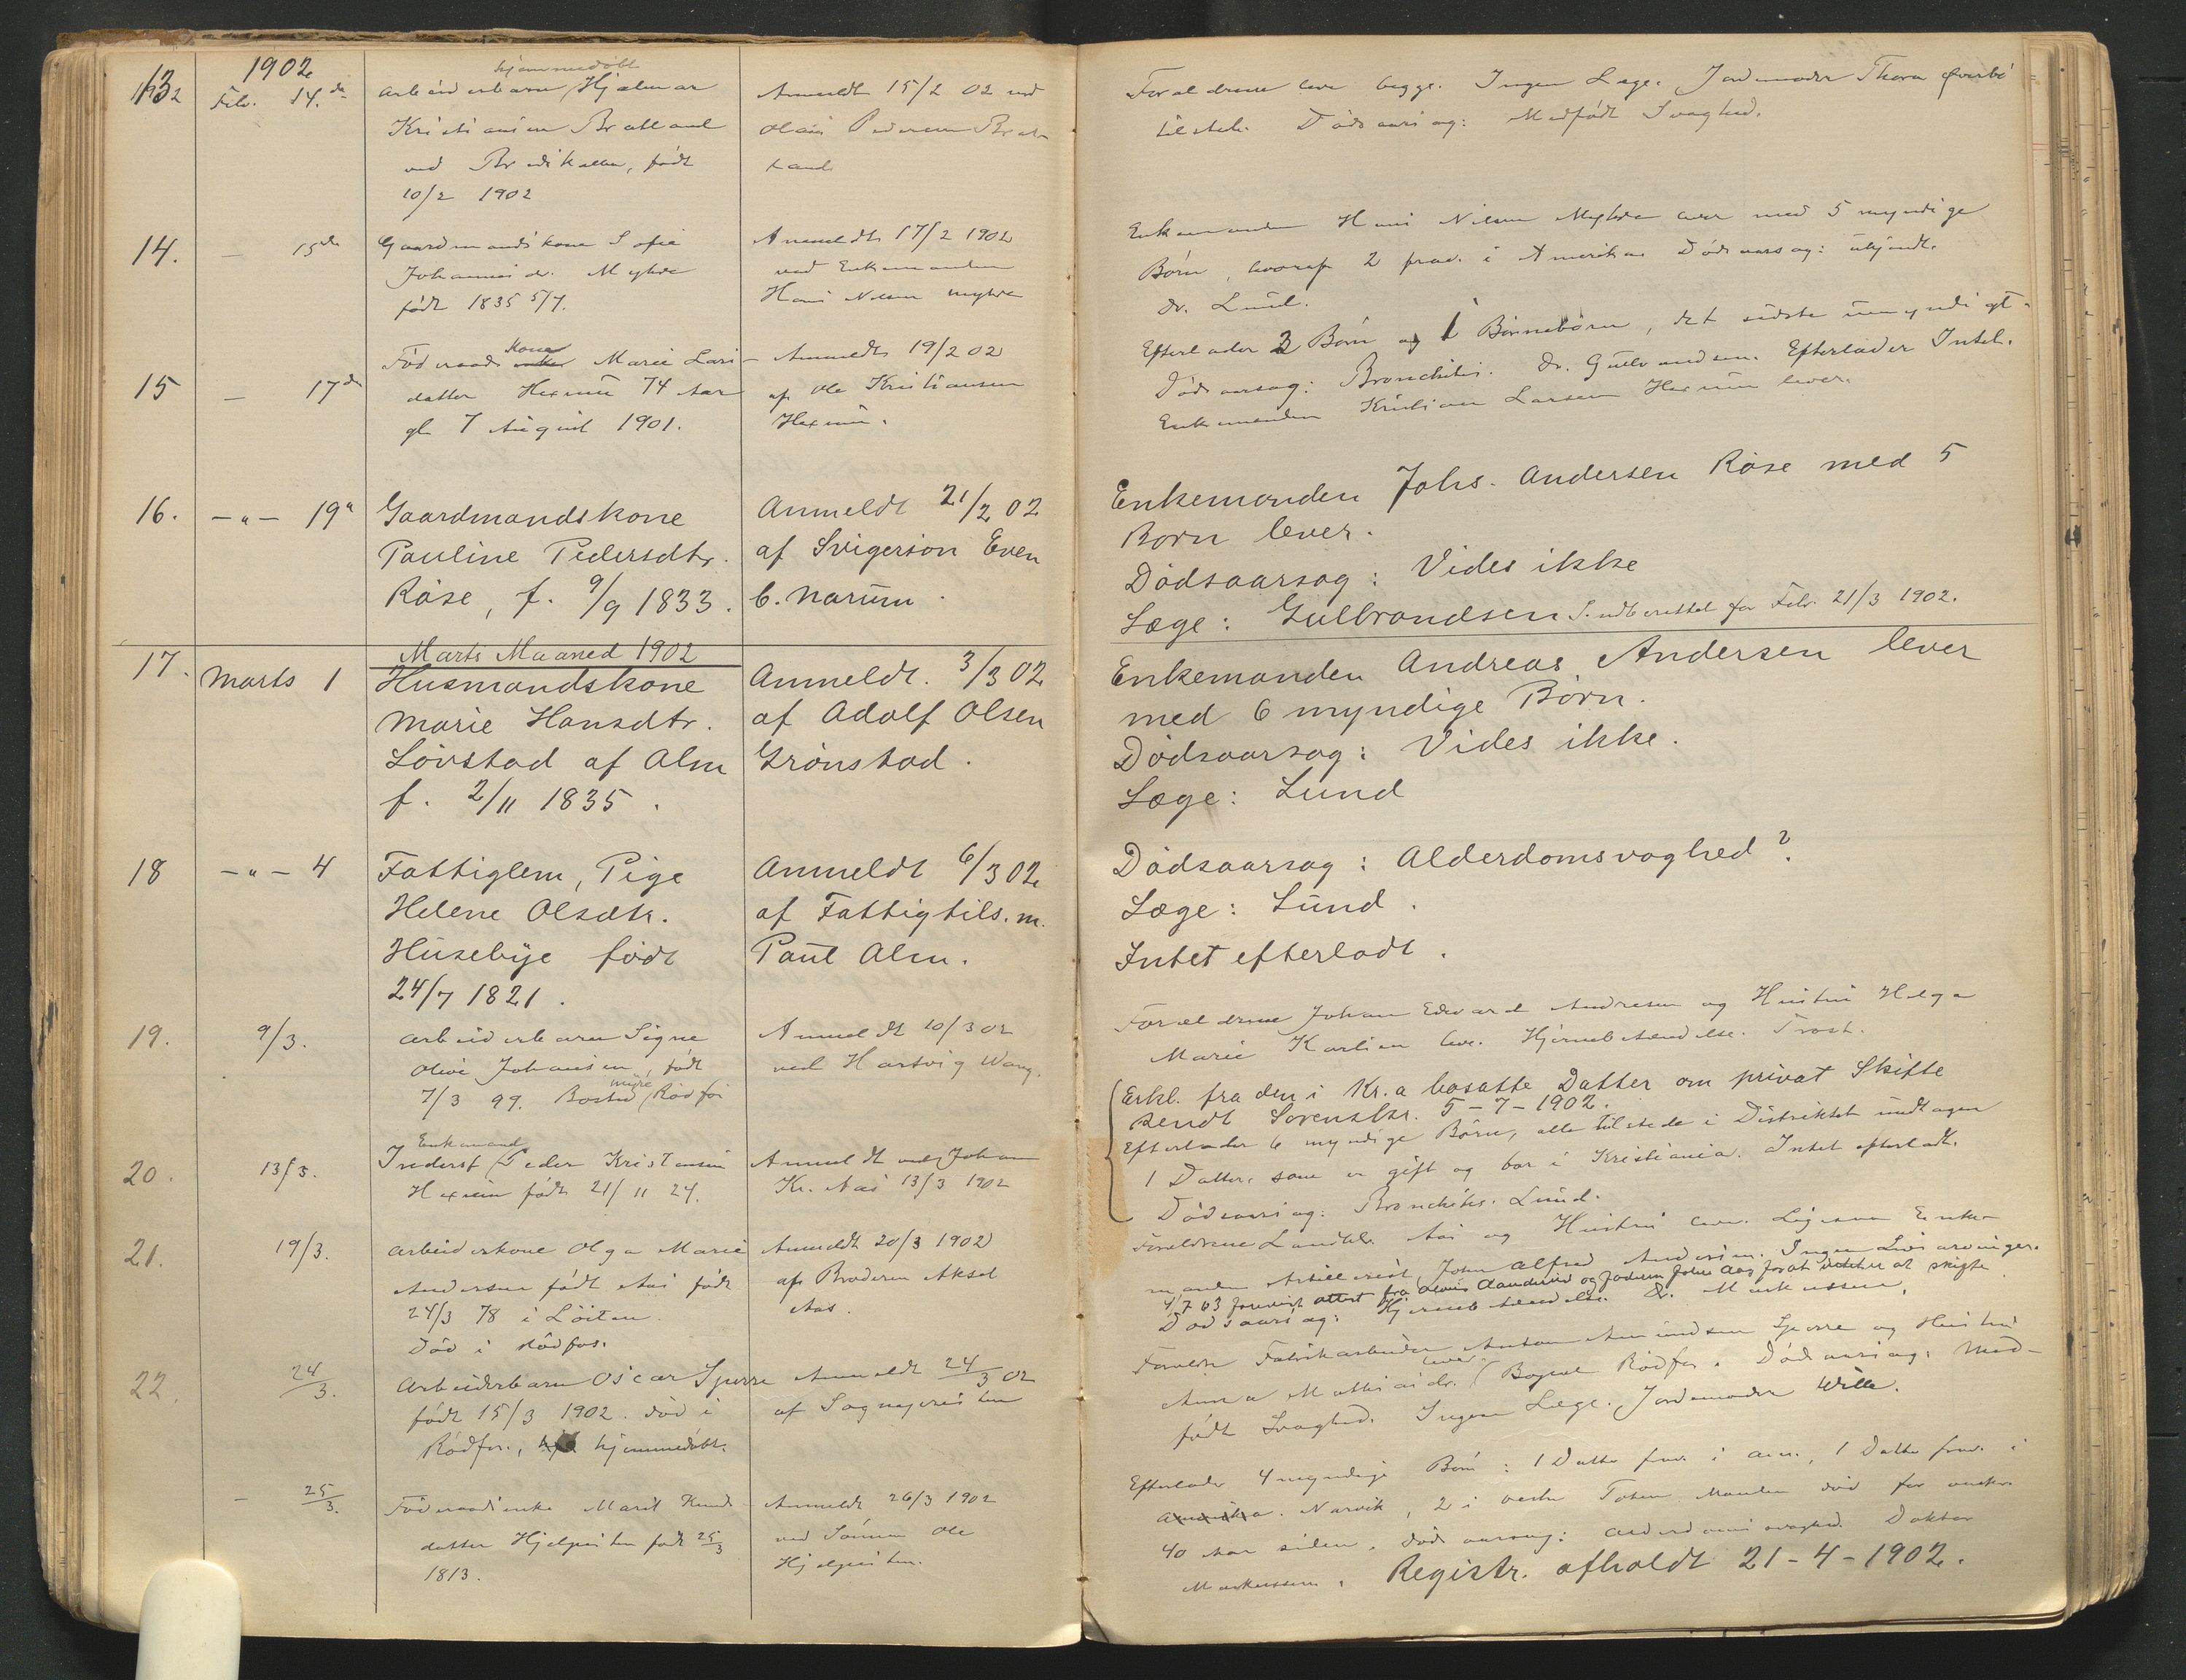 1902
13 Febr. 14. de arbeiderbarn hjemmedøbt Hjalmar
Kristiansen Bratland
ved født
10/2 1902
Anmeldt 15/2 02 ved
Pedersen Brat-
land
Forældrene leve begge. Ingen Læge. Jordmoder Thora Øverbö
tilstede. Dödsaarsag: Medfödt Svaghed.
14. — 15de Gaardmandskone Sofie
Johannesdr. Myhre
født 1835 5/7.
Anmeldt 17/2 1902
ved Enkemanden
Hans Nilsen Myhre
Enkemanden Hans Nilsen Myhre lever med 5 myndige
Börn, hvoraf 2 frav. i Amerika Dödsaarsag: ukjendt.
Dr. Lund.
15 — 17de Föderaads kone Marie Lars-
datter Hexum 74 Aar
gl 7 August 1901.
Anmeldt 19/2 02
af Ole Kristiansen
Hexum.
Efterlader 3 Börn og 1 Börnebörn, det sidste umyndigt.
Dödsaarsag: Bronchitis. Dr. Gulbrandsen. Efterlader Intet.
Enkemanden Kristian Larsen Hexum lever.
16. — " — 19de Gaardmandskone
Pauline Pedersdtr.
Röse, f. 9/9 1833.
Anmeldt 21/2 02
af Svigersön Even
C. Narum.
Enkemanden Johs. Andersen Röse med 5
Börn lever.
Dödsaarsag: Vides ikke
Læge: Gulbrandsen Indberettet for Febr. 21/3 1902.
Marts Maaned 1902
17. Marts 1 Husmandskone
Marie Hansdtr.
Lövstad af Alm
f. 2/11 1835.
Anmeldt. 3/3 02
af Adolf Olsen
Grönstad.
Enkemanden Andreas Andersen lever
med 6 myndige Börn.
Dödsaarsag: Vides ikke.
Læge: Lund
18 — " — 4 Fattiglem, Pige
Helene Olsdtr.
Husebye födt
24/7 1821.
Anmeldt 6/3 02
af Fattigtils.m.
Paul Alm.
Dödsaarsag: Alderdomsvaghed?
Læge: Lund.
Intet efterladt.
19. 9/3. arbeiderbarn Signe
Olive Johansen, født
7/3 99. Bosted
Anmeldt 10/3 02
ved Hartvig Wang.
Forældrene Johan Edvard Andresen og Hustru Helga
Marie Karlsen leve. Hjernebetændelse. Trost.
20. 13/3. Inderst Enkemand Peder Kristensen
Hexum født 21/11 24.
Anmeldt ved Johan
Kr. Aas 13/3 1902
Erkl. fra den i Kr.a bosatte Datter om privat Skifte
sendt Sorenskr. 5-7-1902.
Efterlader 6 myndige Börn, alle tilstede i Distriktet undtagen
1 Datter, som er gift og bor i Kristiania. Intet efterladt.
Dödsaarsag: Bronchitis. Lund.
21. 19/3. Arbeiderkone Olga Marie
Andersen født Aas født
24/3 78 i Löiten
Död i Rødfos.
Anmeldt 20/3 1902
af Broderen Aksel
Aas.
Forældrene Aas og Hustru leve. Ligesom Enke-
manden John Alfred Andersen. Ingen Livsarvinger.
4/7 03 attest fra
Dødsaarsag: Hjernebetændelse. Dr. Markussen.
22. 24/3. Arbeiderbarn Oscar Sperre
født 15/3 1902. død i
Rødfos., hjemmedøbt.
Anmeldt 24/3 02
af Sognepresten
Forældre Fabrikarbeider Anton Amundsen Sperre og Hustru
Anna Mathiasdr. lever. Bopæl Rødfos. Dødsaarsag: Med-
født Svaghed. Ingen Læge. Jordemoder Wille.
— 25/3. Föderaadsenke Marit Knuds-
datter født 25/3
1813.
Anmeldt 26/3 1902
ved Sønnen Ole
Efterlader 4 myndige Börn: 1 Datter frav. i Am., 1 Datter frav. i
Narvik, 2 i Vestre Toten. Manden død for omtr.
40 Aar siden. Dödsaarsag: Alderdomssvaghed. Doktor
Markussen. Registr. afholdt 21-4-1902.